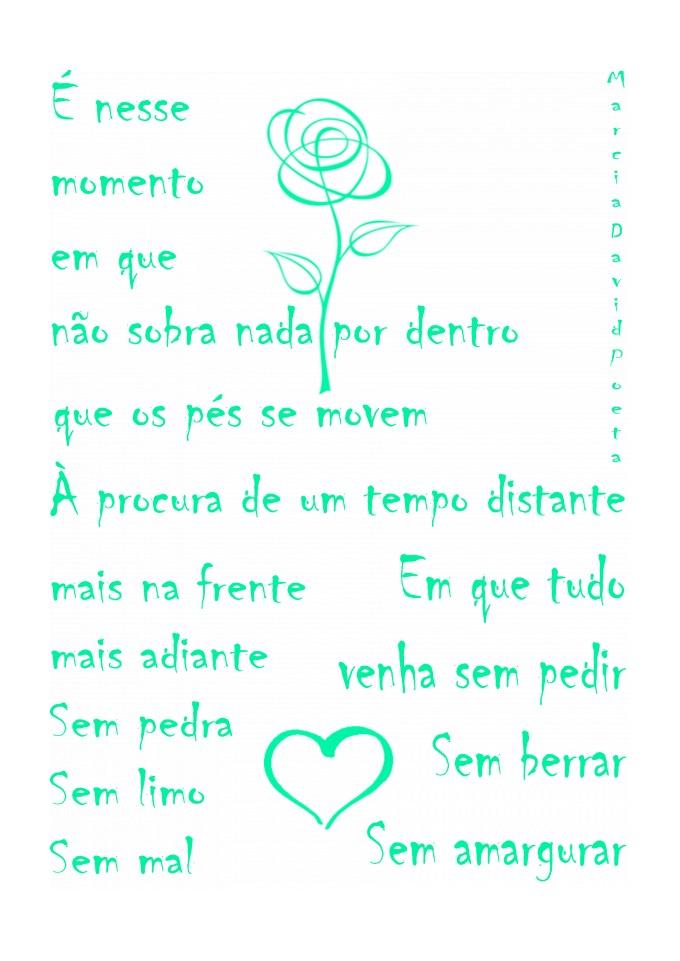 É nesse
momento
em que
não sobra nada por dentro
que os pés se movem
À procura de um tempo distante
mais na frente
mais adiante
Sem pedra
Sem limo
Sem mal
Em que tudo
venha sem pedir
Sem berrar
Sem amargurar
Marcia David Poeta